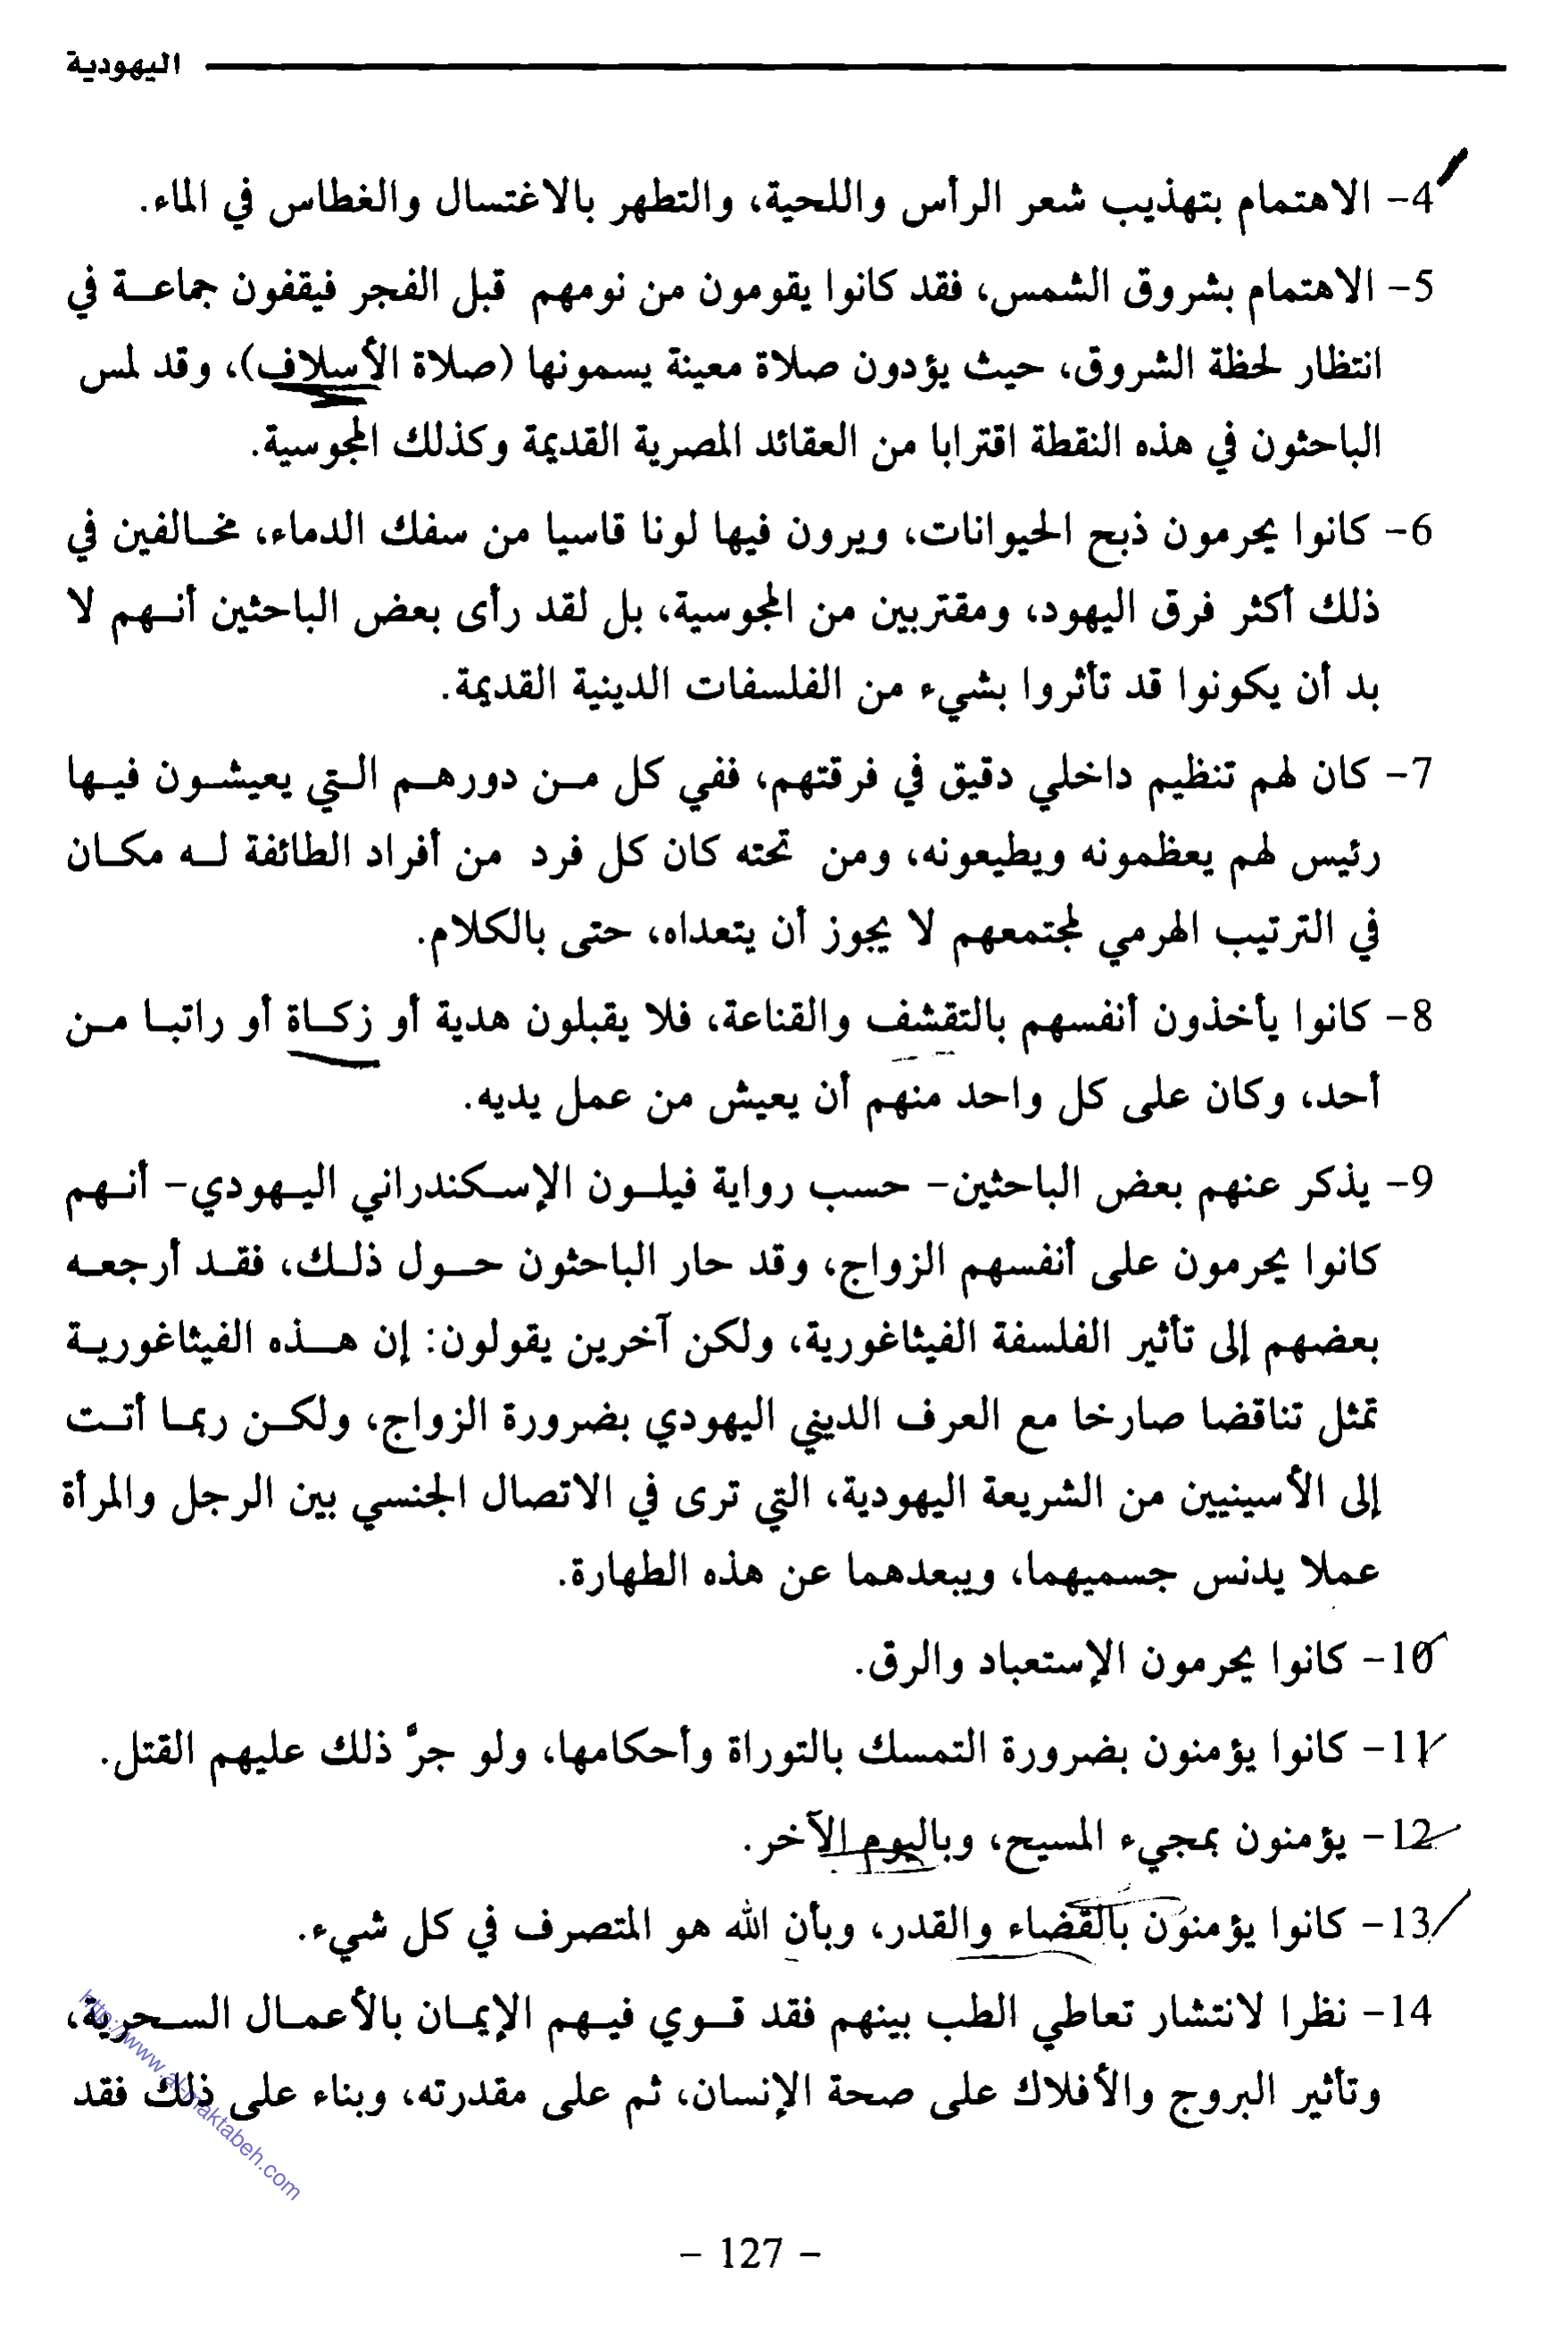 اليهودية
4- الاهتمام بتهذيب شعر الرأس واللحية، والتطهر بالاغتسال والغطاس في الماء.
5- الاهتمام بشروق الشمس، فقد كانوا يقومون من نومهم قبل الفجر فيقفون جماعة في
انتظار لحظة الشروق، حيث يؤدون صلاة معينة يسمونها (صلاة الأسلاف)، وقد لمس
الباحثون في هذه النقطة اقترابا من العقائد المصرية القديمة وكذلك المجوسية.
6- كانوا يحرمون ذبح الحيوانات، ويرون فيها لونا قاسيا من سفك الدماء، مخالفين في
ذلك أكثر فرق اليهود، ومقتربين من المجوسية، بل لقد رأى بعض الباحثين أنهم لا
بد أن يكونوا قد تأثروا بشيء من الفلسفات الدينية القديمة.
7- كان لهم تنظيم داخلي دقيق في فرقتهم، ففي كل من دورهم التي يعيشون فيها
رئيس لهم يعظمونه ويطيعونه، ومن تحته كان كل فرد من أفراد الطائفة له مكان
في الترتيب الهرمي لمجتمعهم لا يجوز أن يتعداه، حتى بالكلام.
8- كانوا يأخذون أنفسهم بالتقشف والقناعة، فلا يقبلون هدية أو زكاة أو راتبا من
أحد، وكان على كل واحد منهم أن يعيش من عمل يديه.
9- يذكر عنهم بعض الباحثين- حسب رواية فيلون الإسكندراني اليهودي- أنهم
كانوا يحرمون على أنفسهم الزواج، وقد حار الباحثون حول ذلك، فقد أرجعه
بعضهم إلى تأثير الفلسفة الفيثاغورية، ولكن آخرين يقولون: إن هذه الفيثاغورية
تمثل تناقضا صارخا مع العرف الديني اليهودي بضرورة الزواج، ولكن ربما أتت
إلى الأسينيين من الشريعة اليهودية، التي ترى في الاتصال الجنسي بين الرجل والمرأة
عملا يدنس جسميهما، ويبعدهما عن هذه الطهارة.
10- كانوا يحرمون الإستعباد والرق.
11- كانوا يؤمنون بضرورة التمسك بالتوراة وأحكامها، ولو جرَّ ذلك عليهم القتل.
12- يؤمنون بمجيء المسيح، وباليوم الآخر.
13- كانوا يؤمنون بالقضاء والقدر، وبأن الله هو المتصرف في كل شيء.
14- نظرا لانتشار تعاطي الطب بينهم فقد قوي فيهم الإيمان بالأعمال السحرية،
وتأثير البروج والأفلاك على صحة الإنسان، ثم على مقدرته، وبناء على ذلك فقد
http://www.al-maktabeh.com
- 127 -